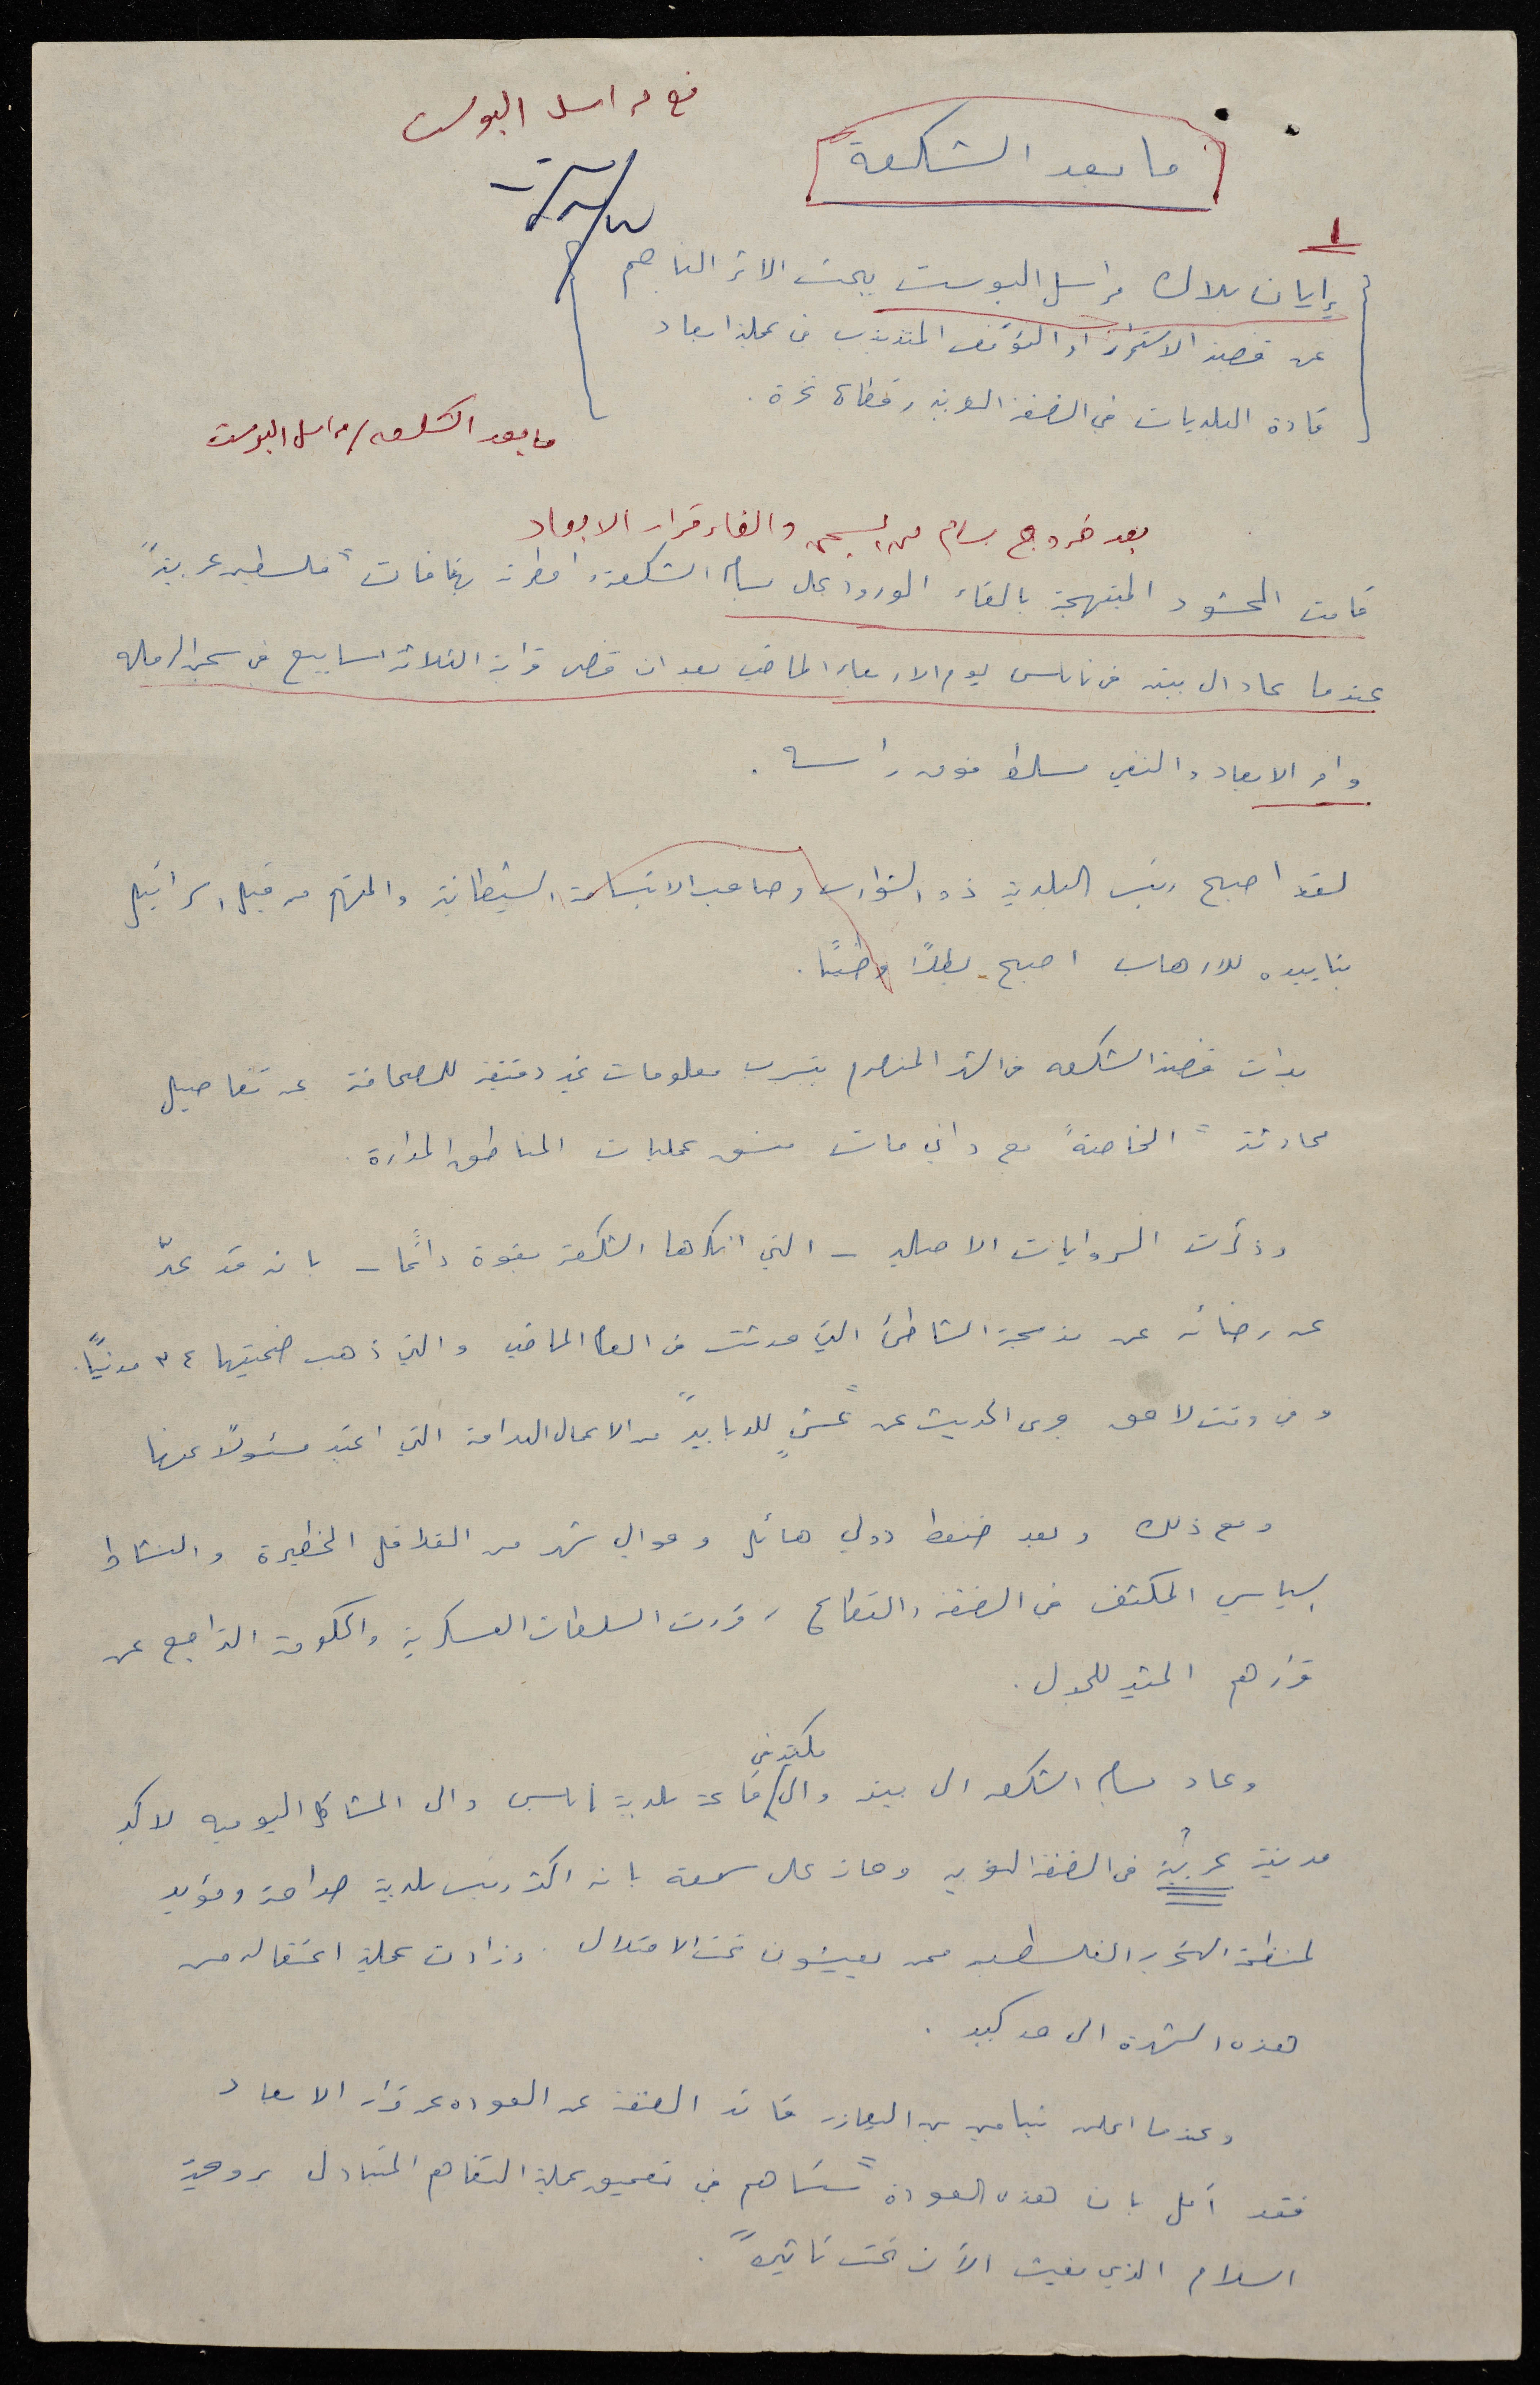 مع مراسل البوست
ما بعد الشكعة
١
إيان بلاك مراسل البوست يبحث الاثر الناجم
عن قضية الاستمرار او التوقف المتذبذب في عملية ابعاد
قادة البلديات في الضفة الغربية وقطاع غزة .
ما بعد الشكعه / مراسل البوست
بعد خروج بسام من السجن والغاء قرار الابعاد
قامت الحشود المبتهجة بالقاء الورود على بسام الشكعة وامطرته بهتافات " فلسطين عربية "
عندما عاد الى بيته في نابلس يوم الاربعاء الماضي بعد ان قضى قرابة الثلاثة اسابيع في سجن الرمله
وامر الابعاد والنفي مسلط فوق راسه .
لقد اصبح رئيس البلدية ذو الشوارب وصاحب الابتسامة الشيطانية والمتهم من قبل اسرائيل
بتاييده للارهاب اصبح بطلاً وطنيًا .
بدات قضية الشكعه في الشهر المنصرم بتسرب معلومات غير دقيقة للصحافة عن تفاصيل
محادثة " الخاصة " مع داني مات منسق عمليات المناطق المدارة .
وذكرت الروايات الاصلية - التي انكرها الشكعة بقوة دائمًا - بانه قد عبّر
عن رضائه عن مذبحة الشاطئ التي حدثت في العام الماضي والتي ذهب ضحيتها ٣٤ مدنيًا .
وفي وقت لاحق جرى الحديث عن " عشٍ للدبابير " من الاعمال الهدامة التي اعتبر مسئولاً عنها
ومع ذلك وبعد ضغط دولي هائل وحوالي شهر من القلاقل الخطيرة والنشاط
السياسي المكثف في الضفة والقطاع ، قررت السلطات العسكرية والحكومة التراجع عن
قرارهم المثير للجدل .
وعاد بسام الشكعه الى بيته والى مكتبه في قاعة بلدية نابلس والى المشاكل اليوميه لاكبر
مدينة عربية في الضفة الغربيه وحاز على سمعة بانه اكثر رئيس بلدية صراحة ومؤيد
لمنظمة التحرير الفلسطينيه ممن يعيشون تحت الاحتلال . وزادت عملية اعتقاله من
هذه الشهرة الى حد كبير .
وعندما اعلن بنيامين بن اليعازر قائد الضفة عن العوده عن قرار الابعاد
فقد أمل بان هذه العودة " ستساهم في تعميق عملية التفاهم المتبادل بروحية
السلام الذي نعيش الآن تحت تاثيره " .